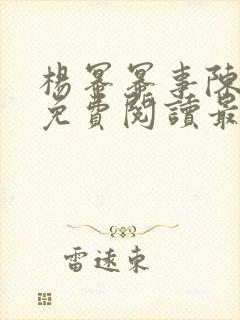 楊冪冪事陳
免費閱讀最
雷遠東